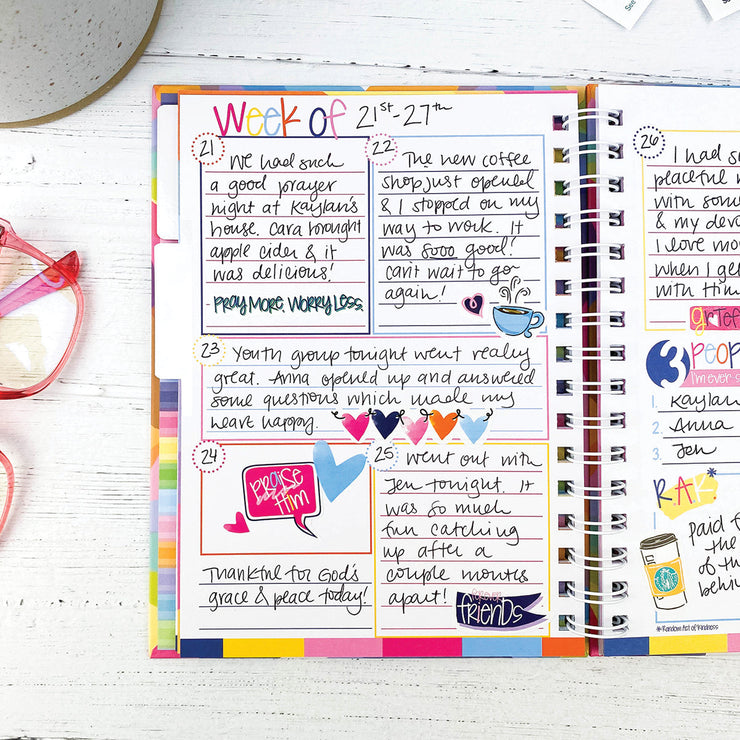 Week of 21ST-27TH
21
We had such
a good prayer
night at Kaylan's
house. Cara brought
apple cider & it
was delicious!
PRAY MORE, WORRY LESS.
22
The new coffee
shop just opened
& I stopped on my
way to work. It
was sooo good!
can't wait to go
again!
23
Youth group tonight went really
great. Anna opened up and answered
some questions which made my
heart happy.
24
PRaise
Him
Thankful for God's
grace & peace today!
25
Went out with
Jen tonight. It
was so much
fun catching
up after a
couple months
apart!
FOREVER
FRIENDS
26
I had s
peaceful
with som
& my dev
I love mo
when I ge
with Him
gratef
3 PEOP
I'm ever s
1. Kaylan
2. Anna
3. Jen
R.A.K*
paid f
the
of th
behin
*Random Act of Kindness